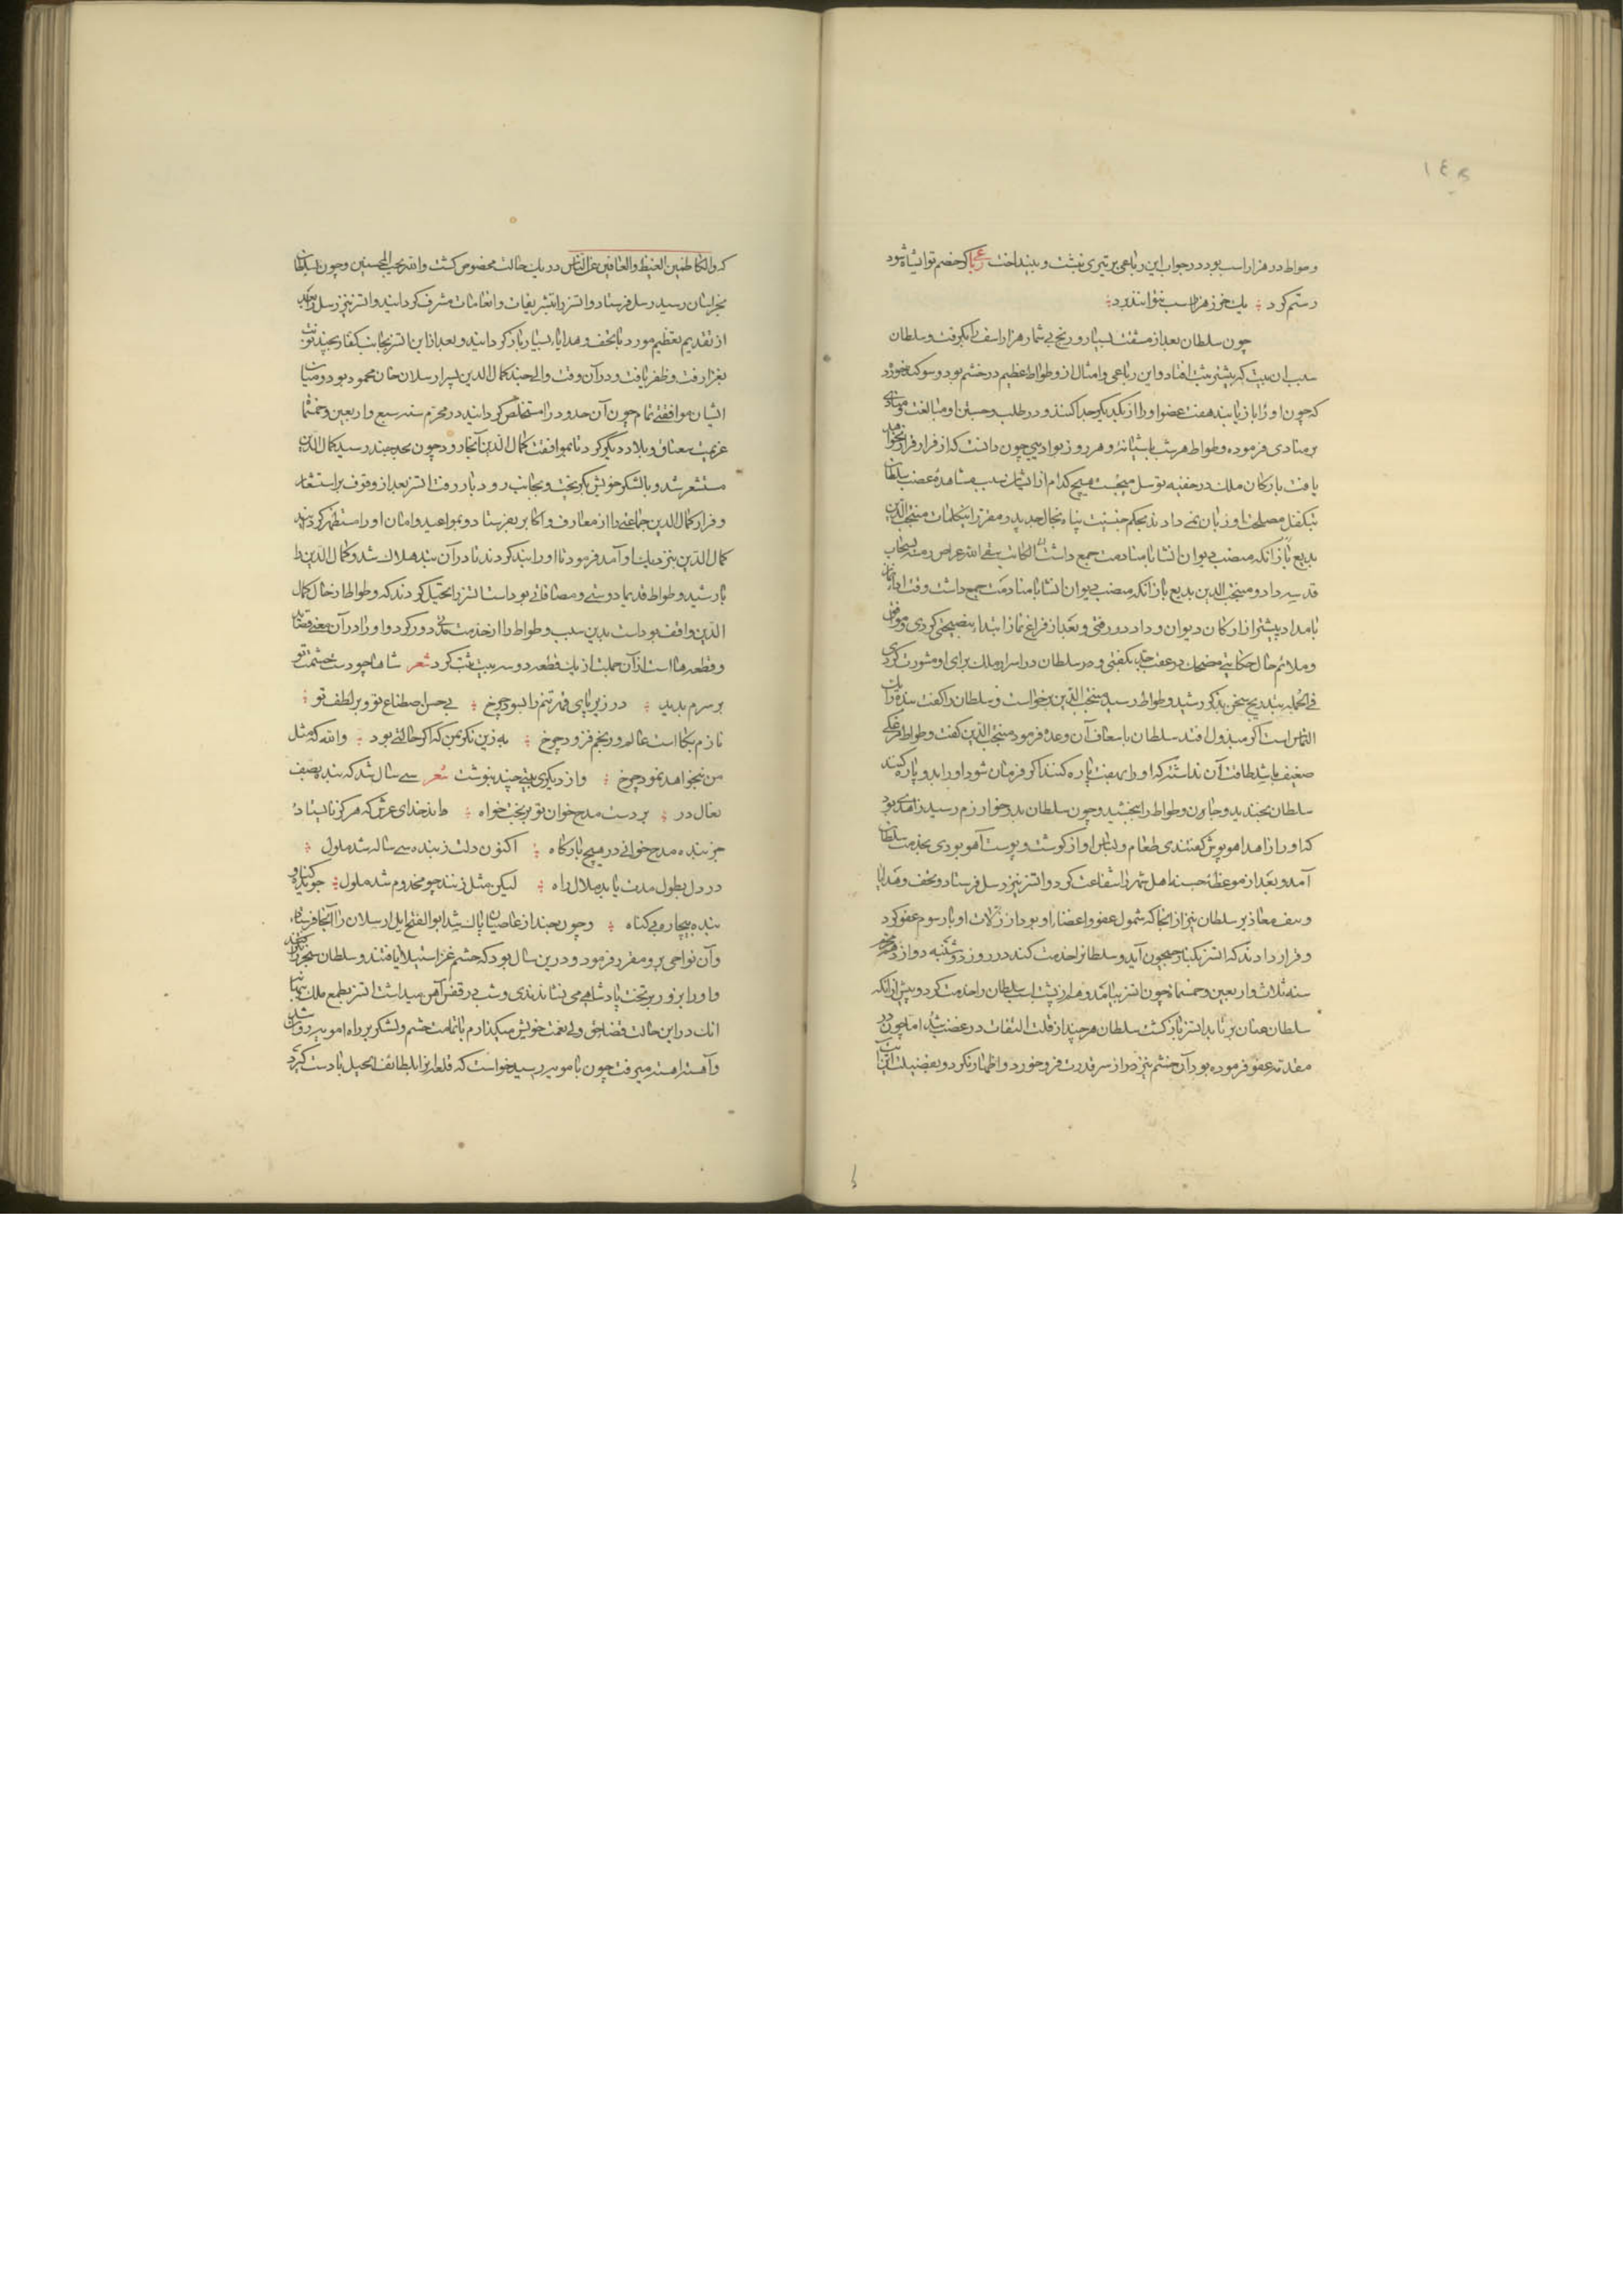 ١٤٨
وطواط در هزار اسب بود در جواب این رباعی بر تیری نبشت و بینداخت رباعی گر خصم تو ای شاه شود
رستم گرد ؛ یک خر ز هزار اسب نتواند برد ؛
چون سلطان بعد از مشقت بسیار و رنج بی شمار هزار اسف را بگرفت و سلطان
سبب این بیت که پیشتر ثبت افتاد و این رباعی و امثال از وطواط عظیم در خشم بود و سوگند خورده
که چون او را باز یابند هفت عضو او را از یکدیگر جدا کنند و در طلب و جستن او مبالغت و منادی
بر منادی فرموده و وطواط هر شب باشیانه و هر روز بوادیی چون دانست که از فرار قرار نخواهد
یافت بارکان ملک در خفیه توسل میجست هیچ کدام از ایشان سبب مشاهده غضب سلطان
بتکفل مصلحت او زبان نمی دادند بحکم جنسیت پناه بخال جد پدر مقرر این کلمات منتجب الدین
بدیع باز آنکه منصب دیوان انشا با منادمت جمع داشت الکاتب سقی الله عراص رمسه بسحاب
قدسه داد و منتجب الدین بدیع باز آنکه منصب دیوان انشا با منادمت جمع داشت وقت ادای نماز
بامداد پیشتر از ارکان دیوان و داد در رفتی و بعد از فراغ نماز ابتدا بنصیحتی کردی و موافق
و ملائم حال حکایتی مضحک در عقب جد بگفتی و در سلطان در اسرار ملک برای او مشورت کردی
فی الجمله بتدریج سخن بذکر رشید وطواط رسید منتجب الدین برخواست و سلطان را گفت بنده را یک
التماس است اگر مبذول افتد سلطان باسعاف آن وعده فرمود منتجب الدین گفت وطواط مرغکی
ضعیف باشد طاقت آن نداشته که او را بهفت پاره کنند اگر فرمان شود او را بدو پاره کنند
سلطان بخندید و جان وطواط را ببخشید و چون سلطان بدر خوارزم رسید زاهدی بود
که او را زاهد اهو پوش گفتندی طعام و لباس او از گوشت و پوست آهو بودی بخدمت سلطان
آمد و بعد از موعظه حسنه اهل شهر را شفاعت کرد و اتسز نیز رسل فرستاد و تحف و هدایا
و سف معاذیر سلطان نیز از انجا که شمول عفو و اغضاء او بود از زلات او بار سوم عفو کرد
و قرار دادند که اتسز بکنار جیحون آید و سلطانرا خدمت کند در روز دوشنبه دوازدهم محرم
سنه ثلاث و اربعین و خمسمائة چون اتسز بیامد و هم از پشت اسب سلطان را خدمت کرد و پیش از آنکه
سلطان عنان بر تابد اتسز باز گشت سلطان هر چند از قلت التفات در غضب شد اما چون در
مقدمه عفو فرموده بود آن خشم نیز هم از سر قدرت فرو خورد و اظهار نکرد و بفضیلت این آیت
که والکاظمین الغیظ والعافین عن الناس در یک حالت مخصوص گشت والله یحب المحسنین و چون سلطان
بخراسان رسید رسل فرستاد و اتسز را بتشریفات و انعامات مشرف گردانید و اتسز نیز رسل را بعد
از تقدیم تعظیم مورد با تحف و هدایاء بسیار باز گردانید و بعد از این اتسز بجانب کفار بچند نوبت
بغزا رفت و ظفر یافت و در آن وقت والی جند کمال الدین پسر ارسلان خان محمود بود و میان
ایشان موافقتی تمام چون آن حدود را مستخلص گردانید در محرم سنه سبع و اربعین و خمسمائة
عزیمت سقناق و بلاد دیگر کرد تا بموافقت کمال الدین آنجا رود چون بحد جند رسید کمال الدین
مستشعر شد و با لشکر خویش بگریخت و بجانب رودبار رفت اتسز بعد از وقوف بر استشعار
و فرار کمال الدین جماعتی را از معارف و اکابر بفرستاد و بمواعید و امان او را مستظهر گردانید
کمال الدین بنزدیک او آمد فرمود تا او را بند کردند تا در آن بند هلاک شد و کمال الدین را
با رشید وطواط قدیما دوستی و مصافاتی بوده است اتسز را تخییل کردند که وطواط از حال کمال
الدین واقف بوده است بدین سبب وطواط را از خدمت مدتی دور کرد و او را در آن معنی قصاید
و قطعه ها است از آن جملت از یک قطعه دو سه بیت ثبت کرد شعر شاها چو دست حشمت تو
بر سرم بدید ؛ در زیر پای قهر تنم را بسود چرخ ؛ بی حسن اصطناع تو و بر لطف تو ؛
نازم بکاست عالم و رنجم فزود چرخ ؛ به زین نگر بمن که اگر حالتی بود ؛ والله که مثل
من نخواهد نمود چرخ ؛ و از دیگری بیتی چند بنوشت شعر سی سال شد که بنده بصف
نعال در ؛ بردست مدح خوان تو بر تخت خواه ؛ داند خدای عرش که هرگز نایستاد
جز بنده مدح خوانی در هیچ بارگاه ؛ اکنون دلت ز بنده سی ساله شد ملول ؛
در دل بطول مدت یابد ملال راه ؛ لیکن مثل زنند چو مخدوم شد ملول ؛ جوید گناه و
بنده بیچاره بی گناه ؛ و چون جند از عاصیان پاک شد ابو الفتح ایل ارسلان را آنجا فرستاد
و آن نواحی برو مقرر فرمود و درین سال بود که حشم غز استیلا یافتند و سلطان سنجر را بگرفتند
و او را بروز بر تخت پادشاهی می نشاندندی و شب در قفس آهن میداشت اتسز بطمع ملک ببهانه
انک در این حالت قضا حق ولی نعمت خویش میگذارم با تمامت حشم و لشکر بر راه امویه روان شد
و آهسته اهسته میرفت چون بامویه رسید خواست که قلعه را بلطائف الحیل با دست گیرد